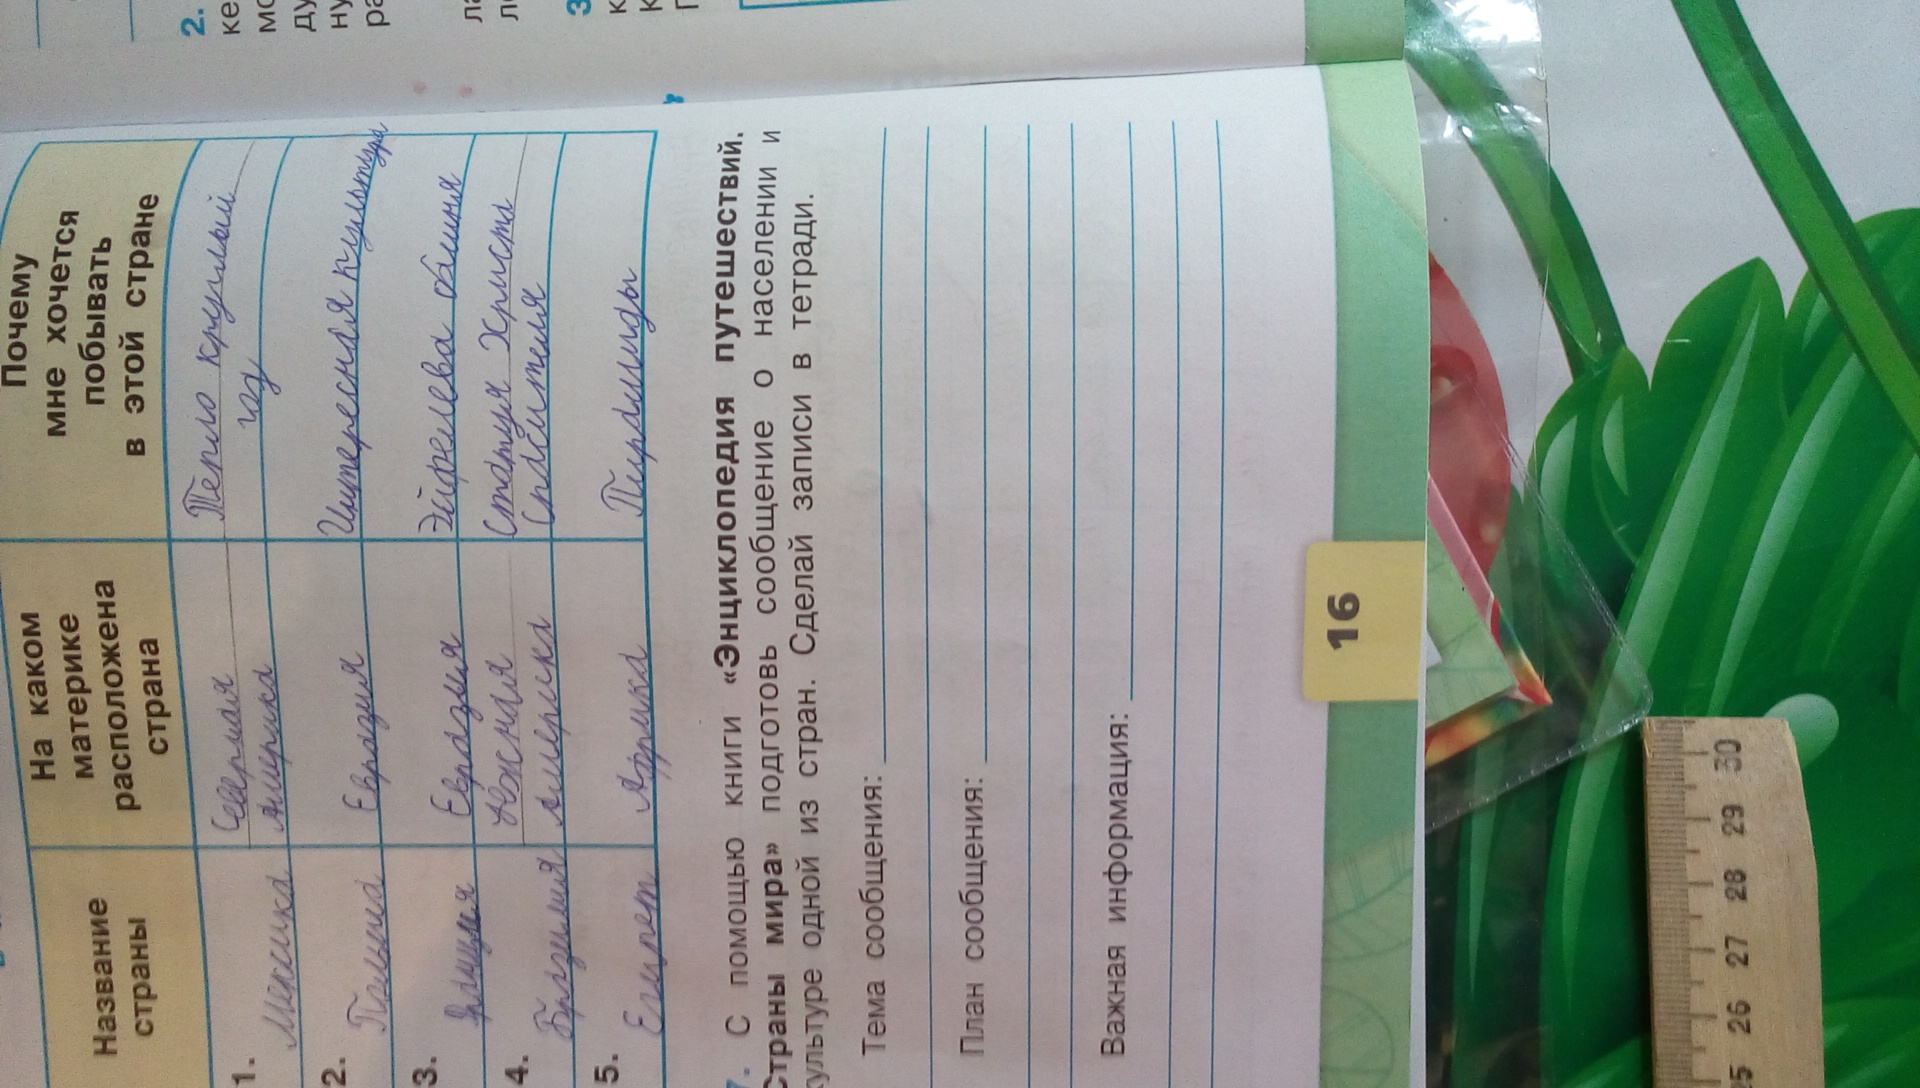 Название страны
На каком материке расположена страна
Почему мне хочется побывать в этой стране
1. Мексика
Северная Америка
Тепло круглый год
2. Польша
Евразия
Интересная культура
3. Франция
Евразия
Эйфелева башня
4. Бразилия
Южная Америка
Статуя Христа Спасителя
5. Египет
Африка
Пирамиды
7. С помощью книги «Энциклопедия путешествий.
Страны мира» подготовь сообщение о населении и
культуре одной из стран. Сделай записи в тетради.
Тема сообщения:
План сообщения:
Важная информация:
16
2.
3
26 27 28 29 30